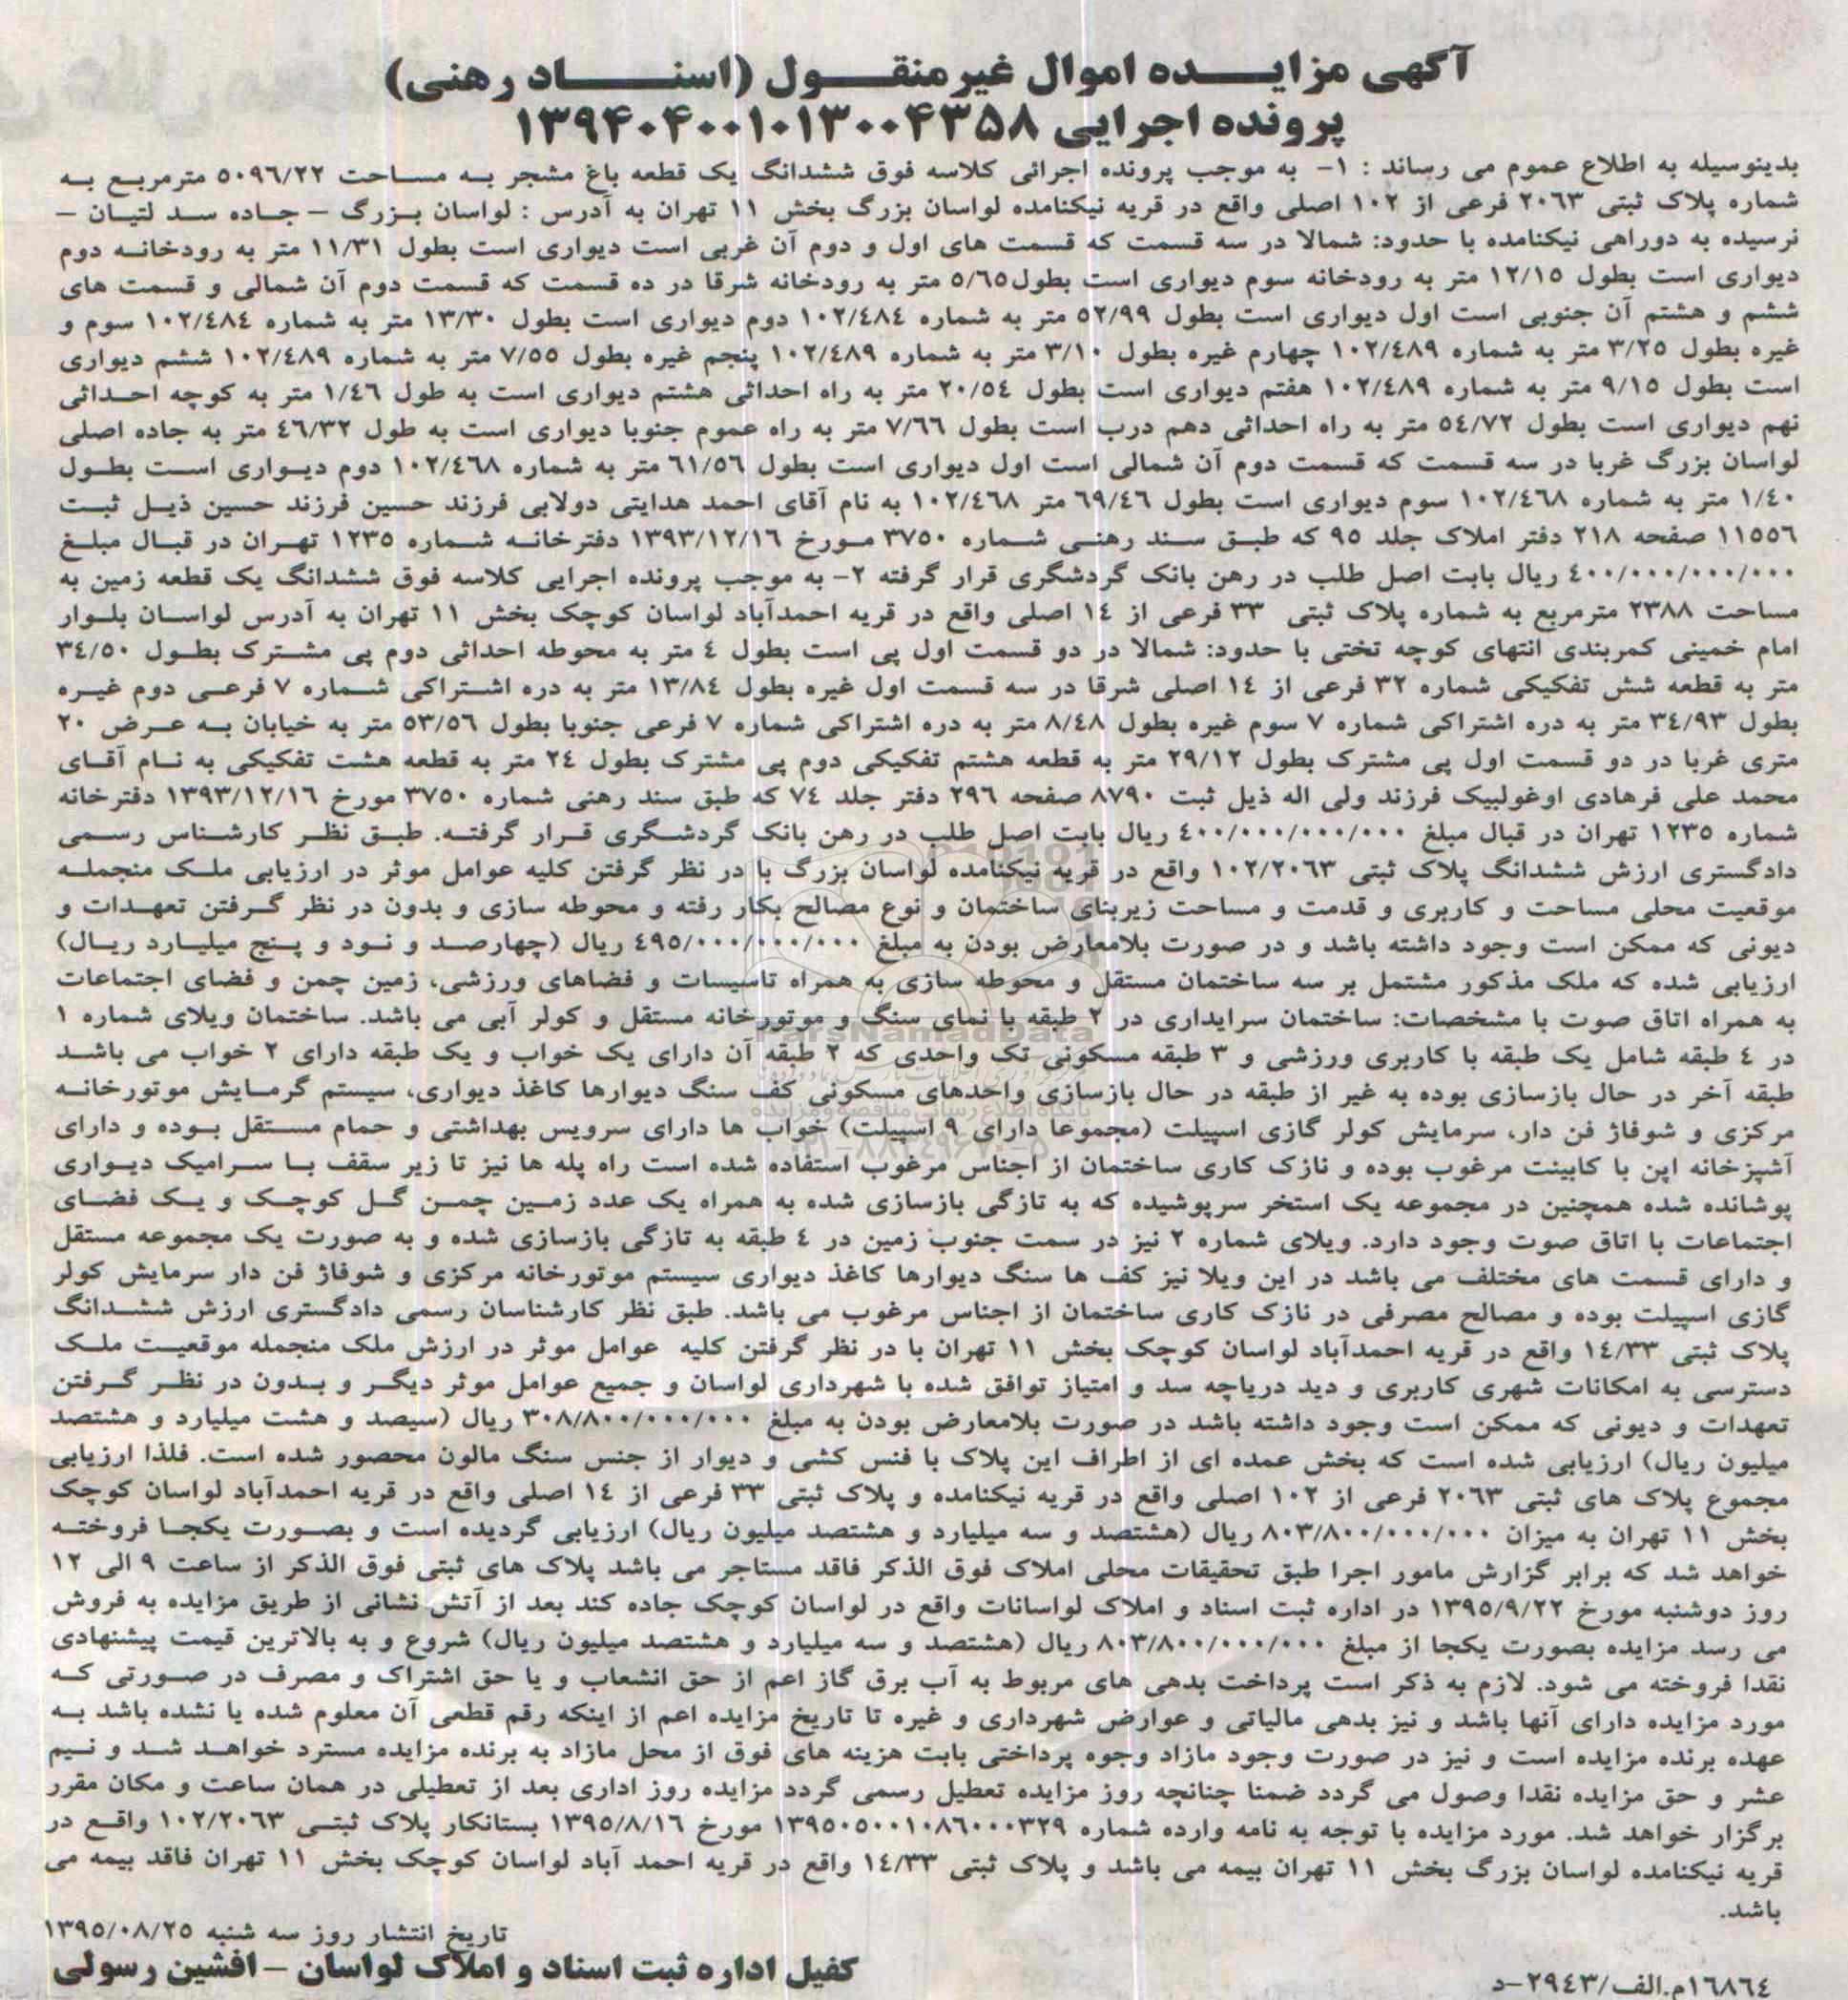 آگهی مزایـــده اموال غیرمنقـــول (اسنـــاد رهنی)
پرونده اجرایی ۱۳۹۴۰۴۰۰۱۰۱۳۰۰۴۳۵۸
بدینوسیله به اطلاع عموم می رساند : ۱- به موجب پرونده اجرائی کلاسه فوق ششدانگ یک قطعه باغ مشجر به مساحت ۵۰۹۶/۲۲ مترمربع به
شماره پلاک ثبتی ۲۰۶۳ فرعی از ۱۰۲ اصلی واقع در قریه نیکنامده لواسان بزرگ بخش ۱۱ تهران به آدرس : لواسان بزرگ – جاده سد لتیان –
نرسیده به دوراهی نیکنامده با حدود: شمالا در سه قسمت که قسمت های اول و دوم آن غربی است دیواری است بطول ۱۱/۳۱ متر به رودخانه دوم
دیواری است بطول ۱۲/۱۵ متر به رودخانه سوم دیواری است بطول۵/۶۵ متر به رودخانه شرقا در ده قسمت که قسمت دوم آن شمالی و قسمت های
ششم و هشتم آن جنوبی است اول دیواری است بطول ۵۲/۹۹ متر به شماره ۱۰۲/٤٨٤ دوم دیواری است بطول ۱۳/۳۰ متر به شماره ۱۰۲/٤٨٤ سوم و
غیره بطول ۳/۲۵ متر به شماره ۱۰۲/٤٨٩ چهارم غیره بطول ۳/۱۰ متر به شماره ۱۰۲/٤٨٩ پنجم غیره بطول ۷/۵۵ متر به شماره ۱۰۲/٤٨٩ ششم دیواری
است بطول ۹/۱۵ متر به شماره ۱۰۲/٤٨٩ هفتم دیواری است بطول ۲۰/٥٤ متر به راه احداثی هشتم دیواری است به طول ۱/٤٦ متر به کوچه احداثی
نهم دیواری است بطول ٥٤/۷۲ متر به راه احداثی دهم درب است بطول ۷/٦٦ متر به راه عموم جنوبا دیواری است به طول ٤٦/۳۲ متر به جاده اصلی
لواسان بزرگ غربا در سه قسمت که قسمت دوم آن شمالی است اول دیواری است بطول ٦١/٥٦ متر به شماره ۱۰۲/٤٦٨ دوم دیواری است بطول
۱/٤۰ متر به شماره ۱۰۲/٤٦٨ سوم دیواری است بطول ٦٩/٤٦ متر ۱۰۲/٤٦٨ به نام آقای احمد هدایتی دولابی فرزند حسین فرزند حسین ذیل ثبت
۱۱٥٥٦ صفحه ۲۱۸ دفتر املاک جلد ۹۵ که طبق سند رهنی شماره ۳۷۵۰ مورخ ۱۳۹۳/۱۲/۱٦ دفترخانه شماره ۱۲۳۵ تهران در قبال مبلغ
٤۰۰/۰۰۰/۰۰۰/۰۰۰ ریال بابت اصل طلب در رهن بانک گردشگری قرار گرفته ۲- به موجب پرونده اجرایی کلاسه فوق ششدانگ یک قطعه زمین به
مساحت ۲۳۸۸ مترمربع به شماره پلاک ثبتی ۳۳ فرعی از ۱٤ اصلی واقع در قریه احمدآباد لواسان کوچک بخش ۱۱ تهران به آدرس لواسان بلوار
امام خمینی کمربندی انتهای کوچه تختی با حدود: شمالا در دو قسمت اول پی است بطول ٤ متر به محوطه احداثی دوم پی مشترک بطول ۳٤/۵۰
متر به قطعه شش تفکیکی شماره ۳۲ فرعی از ۱٤ اصلی شرقا در سه قسمت اول غیره بطول ۱۳/۸٤ متر به دره اشتراکی شماره ۷ فرعی دوم غیره
بطول ۳٤/۹۳ متر به دره اشتراکی شماره ۷ سوم غیره بطول ۸/٤۸ متر به دره اشتراکی شماره ۷ فرعی جنوبا بطول ۵۳/۵٦ متر به خیابان به عرض ۲۰
متری غربا در دو قسمت اول پی مشترک بطول ۲۹/۱۲ متر به قطعه هشتم تفکیکی دوم پی مشترک بطول ۲٤ متر به قطعه هشت تفکیکی به نام آقای
محمد علی فرهادی اوغولبیک فرزند ولی اله ذیل ثبت ۸۷۹۰ صفحه ۲۹٦ دفتر جلد ۷٤ که طبق سند رهنی شماره ۳۷۵۰ مورخ ۱۳۹۳/۱۲/۱٦ دفترخانه
شماره ۱۲۳۵ تهران در قبال مبلغ ٤۰۰/۰۰۰/۰۰۰/۰۰۰ ریال بابت اصل طلب در رهن بانک گردشگری قرار گرفته. طبق نظر کارشناس رسمی
دادگستری ارزش ششدانگ پلاک ثبتی ۱۰۲/۲۰٦۳ واقع در قریه نیکنامده لواسان بزرگ با در نظر گرفتن کلیه عوامل موثر در ارزیابی ملک منجمله
موقعیت محلی مساحت و کاربری و قدمت و مساحت زیربنای ساختمان و نوع مصالح بکار رفته و محوطه سازی و بدون در نظر گرفتن تعهدات و
دیونی که ممکن است وجود داشته باشد و در صورت بلامعارض بودن به مبلغ ٤۹۵/۰۰۰/۰۰۰/۰۰۰ ریال (چهارصد و نود و پنج میلیارد ریال)
ارزیابی شده که ملک مذکور مشتمل بر سه ساختمان مستقل و محوطه سازی به همراه تاسیسات و فضاهای ورزشی، زمین چمن و فضای اجتماعات
به همراه اتاق صوت با مشخصات: ساختمان سرایداری در ۲ طبقه با نمای سنگ و موتورخانه مستقل و کولر آبی می باشد. ساختمان ویلای شماره ۱
در ٤ طبقه شامل یک طبقه با کاربری ورزشی و ۳ طبقه مسکونی تک واحدی که ۲ طبقه آن دارای یک خواب و یک طبقه دارای ۲ خواب می باشد
طبقه آخر در حال بازسازی بوده به غیر از طبقه در حال بازسازی واحدهای مسکونی کف سنگ دیوارها کاغذ دیواری، سیستم گرمایش موتورخانه
مرکزی و شوفاژ فن دار، سرمایش کولر گازی اسپیلت (مجموعا دارای ۹ اسپیلت) خواب ها دارای سرویس بهداشتی و حمام مستقل بوده و دارای
آشپزخانه اپن با کابینت مرغوب بوده و نازک کاری ساختمان از اجناس مرغوب استفاده شده است راه پله ها نیز تا زیر سقف با سرامیک دیواری
پوشانده شده همچنین در مجموعه یک استخر سرپوشیده که به تازگی بازسازی شده به همراه یک عدد زمین چمن گل کوچک و یک فضای
اجتماعات با اتاق صوت وجود دارد. ویلای شماره ۲ نیز در سمت جنوب زمین در ٤ طبقه به تازگی بازسازی شده و به صورت یک مجموعه مستقل
و دارای قسمت های مختلف می باشد در این ویلا نیز کف ها سنگ دیوارها کاغذ دیواری سیستم موتورخانه مرکزی و شوفاژ فن دار سرمایش کولر
گازی اسپیلت بوده و مصالح مصرفی در نازک کاری ساختمان از اجناس مرغوب می باشد. طبق نظر کارشناسان رسمی دادگستری ارزش ششدانگ
پلاک ثبتی ۱٤/۳۳ واقع در قریه احمدآباد لواسان کوچک بخش ۱۱ تهران با در نظر گرفتن کلیه عوامل موثر در ارزش ملک منجمله موقعیت ملک
دسترسی به امکانات شهری کاربری و دید دریاچه سد و امتیاز توافق شده با شهرداری لواسان و جمیع عوامل موثر دیگر و بدون در نظر گرفتن
تعهدات و دیونی که ممکن است وجود داشته باشد در صورت بلامعارض بودن به مبلغ ۳۰۸/۸۰۰/۰۰۰/۰۰۰ ریال (سیصد و هشت میلیارد و هشتصد
میلیون ریال) ارزیابی شده است که بخش عمده ای از اطراف این پلاک با فنس کشی و دیوار از جنس سنگ مالون محصور شده است. فلذا ارزیابی
مجموع پلاک های ثبتی ۲۰٦۳ فرعی از ۱۰۲ اصلی واقع در قریه نیکنامده و پلاک ثبتی ۳۳ فرعی از ۱٤ اصلی واقع در قریه احمدآباد لواسان کوچک
بخش ۱۱ تهران به میزان ۸۰۳/۸۰۰/۰۰۰/۰۰۰ ریال (هشتصد و سه میلیارد و هشتصد میلیون ریال) ارزیابی گردیده است و بصورت یکجا فروخته
خواهد شد که برابر گزارش مامور اجرا طبق تحقیقات محلی املاک فوق الذکر فاقد مستاجر می باشد پلاک های ثبتی فوق الذکر از ساعت ۹ الی ۱۲
روز دوشنبه مورخ ۱۳۹۵/۹/۲۲ در اداره ثبت اسناد و املاک لواسانات واقع در لواسان کوچک جاده کند بعد از آتش نشانی از طریق مزایده به فروش
می رسد مزایده بصورت یکجا از مبلغ ۸۰۳/۸۰۰/۰۰۰/۰۰۰ ریال (هشتصد و سه میلیارد و هشتصد میلیون ریال) شروع و به بالاترین قیمت پیشنهادی
نقدا فروخته می شود. لازم به ذکر است پرداخت بدهی های مربوط به آب برق گاز اعم از حق انشعاب و یا حق اشتراک و مصرف در صورتی که
مورد مزایده دارای آنها باشد و نیز بدهی مالیاتی و عوارض شهرداری و غیره تا تاریخ مزایده اعم از اینکه رقم قطعی آن معلوم شده یا نشده باشد به
عهده برنده مزایده است و نیز در صورت وجود مازاد وجوه پرداختی بابت هزینه های فوق از محل مازاد به برنده مزایده مسترد خواهد شد و نیم
عشر و حق مزایده نقدا وصول می گردد ضمنا چنانچه روز مزایده تعطیل رسمی گردد مزایده روز اداری بعد از تعطیلی در همان ساعت و مکان مقرر
برگزار خواهد شد. مورد مزایده با توجه به نامه وارده شماره ۱۳۹۵۰۵۰۰۱۰۸٦۰۰۰۳۲۹ مورخ ۱۳۹۵/۸/۱٦ بستانکار پلاک ثبتی ۱۰۲/۲۰٦۳ واقع در
قریه نیکنامده لواسان بزرگ بخش ۱۱ تهران بیمه می باشد و پلاک ثبتی ۱٤/۳۳ واقع در قریه احمد آباد لواسان کوچک بخش ۱۱ تهران فاقد بیمه می
باشد.
تاریخ انتشار روز سه شنبه ۱۳۹۵/۰۸/۲۵
کفیل اداره ثبت اسناد و املاک لواسان – افشین رسولی
۱٦۸٦٤م.الف/۲۹٤۳-د
ParsNamadData
پایگاه اطلاع رسانی مناقصه و مزایده